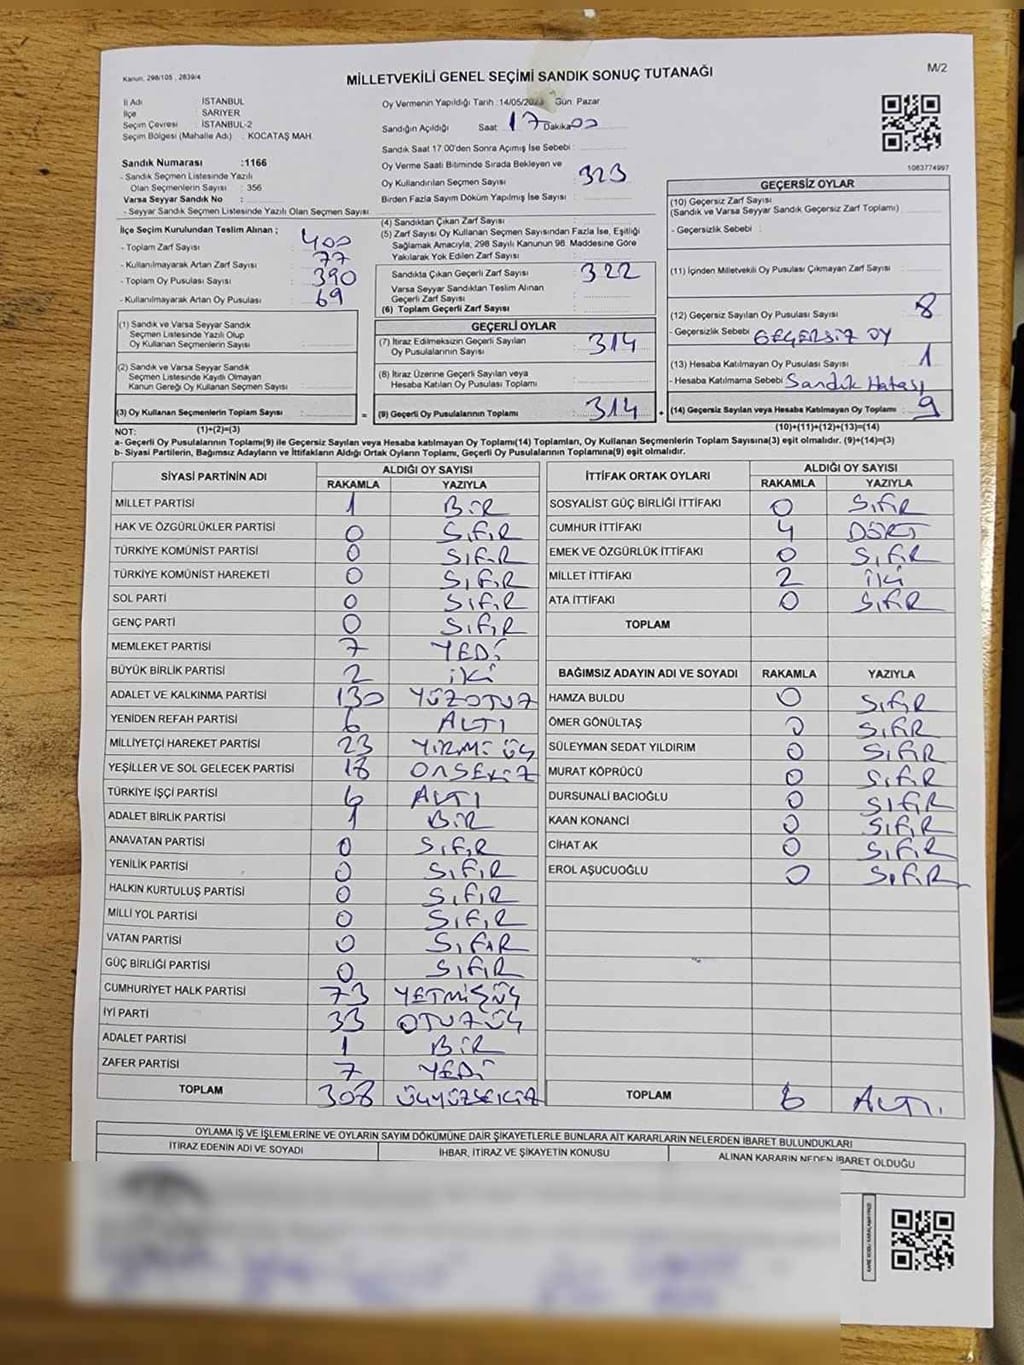 Kanun, 298/105 , 2839/4
MİLLETVEKİLİ GENEL SEÇİMİ SANDIK SONUÇ TUTANAĞI
M/2
İl Adı : İSTANBUL
İlçe : SARIYER
Seçim Çevresi : İSTANBUL-2
Seçim Bölgesi (Mahalle Adı) : KOCATAŞ MAH.
Sandık Numarası :1166
- Sandık Seçmen Listesinde Yazılı
Olan Seçmenlerin Sayısı : 356
Varsa Seyyar Sandık No :
- Seyyar Sandık Seçmen Listesinde Yazılı Olan Seçmen Sayısı
Oy Vermenin Yapıldığı Tarih :14/05/2023 Gün: Pazar
Sandığın Açıldığı Saat 17 Dakika 00
Sandık Saat 17:00'den Sonra Açımış İse Sebebi :
Oy Verme Saati Bitiminde Sırada Bekleyen ve
Oy Kullandırılan Seçmen Sayısı : 323
Birden Fazla Sayım Döküm Yapılmış İse Sayısı :
1083774997
İlçe Seçim Kurulundan Teslim Alınan ;
- Toplam Zarf Sayısı : 400
- Kullanılmayarak Artan Zarf Sayısı : 77
- Toplam Oy Pusulası Sayısı : 390
- Kullanılmayarak Artan Oy Pusulası : 69
(1) Sandık ve Varsa Seyyar Sandık
Seçmen Listesinde Yazılı Olup
Oy Kullanan Seçmenlerin Sayısı :
(2) Sandık ve Varsa Seyyar Sandık
Seçmen Listesinde Kayıtlı Olmayan
Kanun Gereği Oy Kullanan Seçmen Sayısı :
(3) Oy Kullanan Seçmenlerin Toplam Sayısı :
(1)+(2)=(3)
(4) Sandıktan Çıkan Zarf Sayısı :
(5) Zarf Sayısı Oy Kullanan Seçmen Sayısından Fazla İse, Eşitliği
Sağlamak Amacıyla, 298 Sayılı Kanunun 98. Maddesine Göre
Yakılarak Yok Edilen Zarf Sayısı :
Sandıkta Çıkan Geçerli Zarf Sayısı : 322
Varsa Seyyar Sandıktan Teslim Alınan
Geçerli Zarf Sayısı :
(6) Toplam Geçerli Zarf Sayısı :
GEÇERLİ OYLAR
(7) İtiraz Edilmeksizin Geçerli Sayılan
Oy Pusulalarının Sayısı : 314
(8) İtiraz Üzerine Geçerli Sayılan veya
Hesaba Katılan Oy Pusulası Toplamı :
= (9) Geçerli Oy Pusulalarının Toplamı : 314
GEÇERSİZ OYLAR
(10) Geçersiz Zarf Sayısı
(Sandık ve Varsa Seyyar Sandık Geçersiz Zarf Toplamı) :
- Geçersizlik Sebebi :
(11) İçinden Milletvekili Oy Pusulası Çıkmayan Zarf Sayısı :
(12) Geçersiz Sayılan Oy Pusulası Sayısı : 8
- Geçersizlik Sebebi : GEÇERSİZ OY
(13) Hesaba Katılmayan Oy Pusulası Sayısı : 1
- Hesaba Katılmama Sebebi : Sandık Hatası
+ (14) Geçersiz Sayılan veya Hesaba Katılmayan Oy Toplamı : 9
(10)+(11)+(12)+(13)=(14)
NOT:
a- Geçerli Oy Pusulalarının Toplamı(9) ile Geçersiz Sayılan veya Hesaba katılmayan Oy Toplamı(14) Toplamları, Oy Kullanan Seçmenlerin Toplam Sayısına(3) eşit olmalıdır. (9)+(14)=(3)
b- Siyasi Partilerin, Bağımsız Adayların ve İttifakların Aldığı Ortak Oyların Toplamı, Geçerli Oy Pusulalarının Toplamına(9) eşit olmalıdır.
SİYASİ PARTİNİN ADI ALDIĞI OY SAYISI
RAKAMLA YAZIYLA
MİLLET PARTİSİ 1 BİR
HAK VE ÖZGÜRLÜKLER PARTİSİ 0 SIFIR
TÜRKİYE KOMÜNİST PARTİSİ 0 SIFIR
TÜRKİYE KOMÜNİST HAREKETİ 0 SIFIR
SOL PARTİ 0 SIFIR
GENÇ PARTİ 0 SIFIR
MEMLEKET PARTİSİ 7 YEDİ
BÜYÜK BİRLİK PARTİSİ 2 İKİ
ADALET VE KALKINMA PARTİSİ 130 YÜZOTUZ
YENİDEN REFAH PARTİSİ 6 ALTI
MİLLİYETÇİ HAREKET PARTİSİ 23 YİRMİ ÜÇ
YEŞİLLER VE SOL GELECEK PARTİSİ 18 ONSEKİZ
TÜRKİYE İŞÇİ PARTİSİ 6 ALTI
ADALET BİRLİK PARTİSİ 1 BİR
ANAVATAN PARTİSİ 0 SIFIR
YENİLİK PARTİSİ 0 SIFIR
HALKIN KURTULUŞ PARTİSİ 0 SIFIR
MİLLİ YOL PARTİSİ 0 SIFIR
VATAN PARTİSİ 0 SIFIR
GÜÇ BİRLİĞİ PARTİSİ 0 SIFIR
CUMHURİYET HALK PARTİSİ 73 YETMİŞÜÇ
İYİ PARTİ 33 OTUZÜÇ
ADALET PARTİSİ 1 BİR
ZAFER PARTİSİ 7 YEDİ
TOPLAM 308 ÜÇYÜZSEKİZ
İTTİFAK ORTAK OYLARI ALDIĞI OY SAYISI
RAKAMLA YAZIYLA
SOSYALİST GÜÇ BİRLİĞİ İTTİFAKI 0 SIFIR
CUMHUR İTTİFAKI 4 DÖRT
EMEK VE ÖZGÜRLÜK İTTİFAKI 0 SIFIR
MİLLET İTTİFAKI 2 İKİ
ATA İTTİFAKI 0 SIFIR
TOPLAM
BAĞIMSIZ ADAYIN ADI VE SOYADI RAKAMLA YAZIYLA
HAMZA BULDU 0 SIFIR
ÖMER GÖNÜLTAŞ 0 SIFIR
SÜLEYMAN SEDAT YILDIRIM 0 SIFIR
MURAT KÖPRÜCÜ 0 SIFIR
DURSUNALİ BACIOĞLU 0 SIFIR
KAAN KONANCİ 0 SIFIR
CİHAT AK 0 SIFIR
EROL AŞUCUOĞLU 0 SIFIR
TOPLAM 6 ALTI.
OYLAMA İŞ VE İŞLEMLERİNE VE OYLARIN SAYIM DÖKÜMÜNE DAİR ŞİKAYETLERLE BUNLARA AİT KARARLARIN NELERDEN İBARET BULUNDUKLARI
İTİRAZ EDENİN ADI VE SOYADI İHBAR, İTİRAZ VE ŞİKAYETİN KONUSU ALINAN KARARIN NEDEN İBARET OLDUĞU